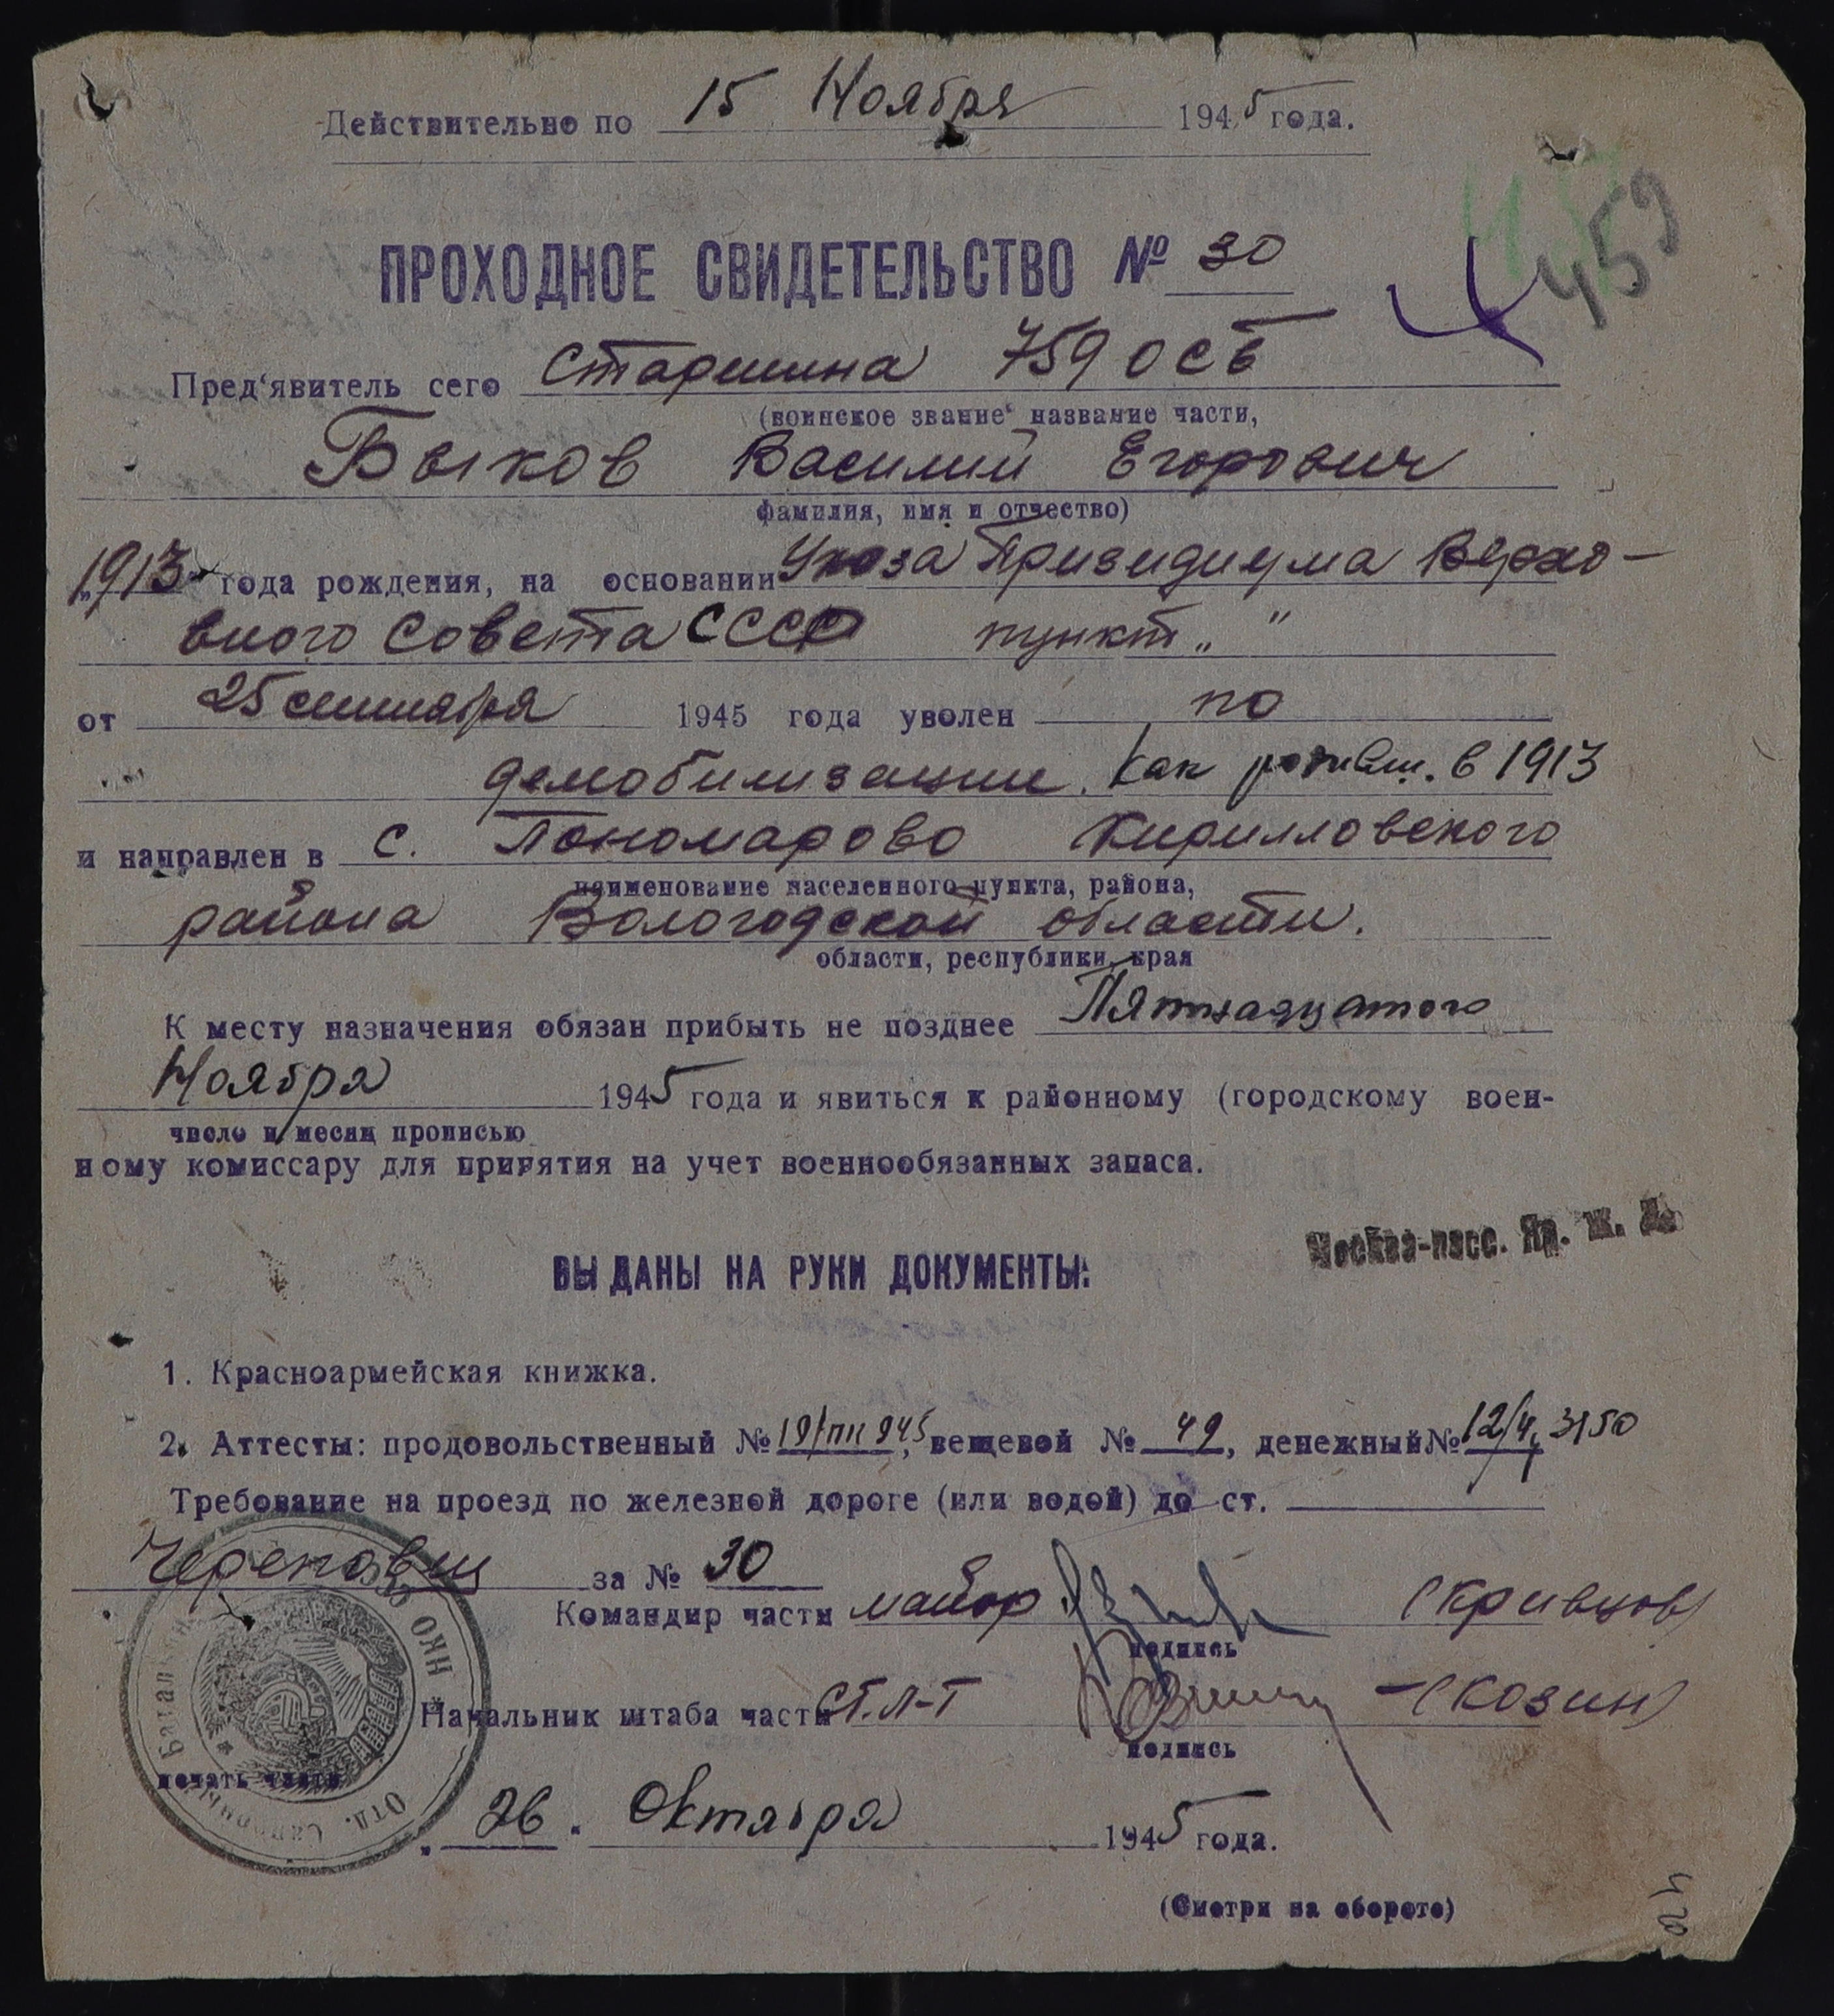 Действительно по 15 Ноября 1945 года.
459
ПРОХОДНОЕ СВИДЕТЕЛЬСТВО № 30
Пред'явитель сего Старшина 759 ОСБ
(воинское звание, название части,
Быков Василий Егорович
фамилия, имя и отчество)
1913 года рождения, на основании Указа Призидиума Верхо-
вного Совета СССР пункт „ "
от 25 сентября 1945 года уволен по
демобилизации. как родивш. в 1913
и направлен в с. Пономарово Кирилловского
наименование населенного пункта, района,
района Вологодской области.
области, республики, края
К месту назначения обязан прибыть не позднее Пятнадцатого
Ноября 1945 года и явиться к районному (городскому воен-
число и месяц прописью
ному комиссару для принятия на учет военнообязанных запаса.
Москва-пасс. Яр. ж. д.
ВЫДАНЫ НА РУКИ ДОКУМЕНТЫ:
1. Красноармейская книжка.
2. Аттесты: продовольственный № 19/пп 945, вещевой № 49, денежный № 12/4, 3150
Требование на проезд по железной дороге (или водой) до ст.
Череповец за № 30
Командир части майор (Кривцов)
подпись
Начальник штаба части Ст. л-т (Козин)
подпись
печать части
НКО СССР Отд. Саперный Батальон
„ 26 " Октября 1945 года.
(Смотри на обороте)